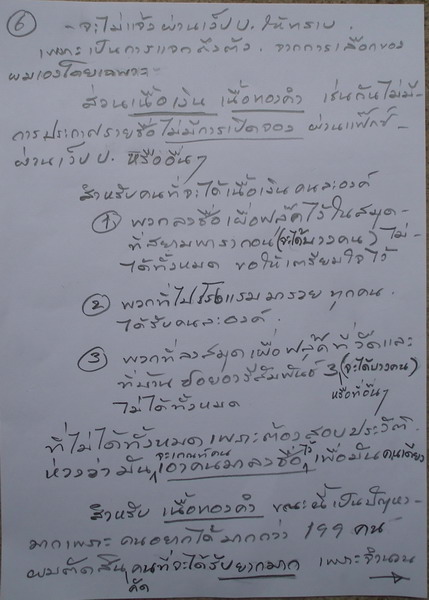 ⑥ - จะไม่แจ้งผ่านเว็ป ป. ให้ทราบ.
เพราะเป็นการแจกถึงตัว. จากการเลือกของ
ผมเองโดยเฉพาะ-
ส่วนเนื้อเงิน เนื้อทองคำ เช่นกันไม่มี
การประกาศรายชื่อไม่มีการเปิดจอง ผ่านแฟ็กซ์-
ผ่านเว็ป ป. หรืออื่นๆ
สำหรับคนที่จะได้เนื้อเงินคนละองค์
① พวกลงชื่อเผื่อฟลุ๊คไว้ในสมุด-
ที่สยามพารากอน (จะได้บางคน) ไม่-
ได้ทั้งหมด ขอให้เตรียมใจไว้
② พวกที่ไปโรงแรมมารวย ทุกคน.
ได้รับคนละองค์.
③ พวกที่ลงสมุดเผื่อฟลุ๊คที่วัดและ
ที่บ้าน ซอยอารีสัมพันธ์ 3 (จะได้บางคน)
ไม่ได้ทั้งหมด หรือที่อื่นๆ
ที่ไม่ได้ทั้งหมด เพราะต้องสอบประวัติ.
ห่วงว่ามันจะเกณฑ์คนเอาคนมาลงชื่อไว้เพื่อมันคนเดียว
สำหรับ เนื้อทองคำ ขณะนี้เป็นปัญหา-
มากเพราะ คนอยากได้มากกว่า 199 คน
ผมตัดสินคัดคนที่จะได้รับยากมาก เพราะจำนวน